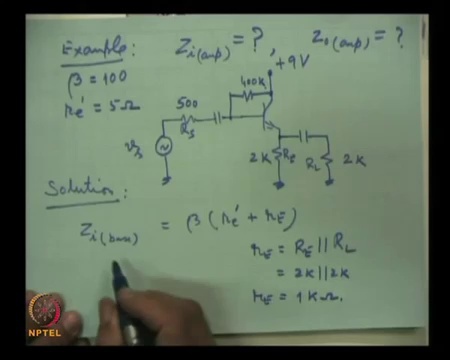 Example: Zi(amp) = ?, Zo(amp) = ?
β = 100
re' = 5Ω
+9V
400K
500
RS
vs
2K RE
RL 2K
Solution:
Zi(base) = β (re' + rE)
rE = RE || RL
= 2K || 2K
rE = 1KΩ.
NPTEL